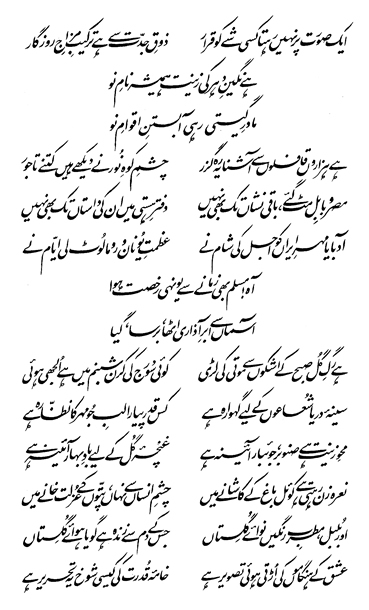 ایک صورت پر نہیں رہتا کسی شے کو قرار ذوقِ جدّت سے ہے ترکیبِ مزاجِ روزگار
ہے نگینِ دہر کی زینت ہمیشہ نامِ نو
مادرِ گیتی رہی آبستنِ اقوامِ نو
ہے ہزاروں قافلوں سے آشنا یہ رہ گزر چشمِ کوہِ نور نے دیکھے ہیں کتنے تاجور
مصر و بابل مٹ گئے، باقی نشاں تک بھی نہیں دفترِ ہستی میں ان کی داستاں تک بھی نہیں
آ دبایا مہرِ ایراں کو اجل کی شام نے عظمتِ یونان و روما لوٹ لی ایّام نے
آہ! مسلم بھی زمانے سے یونہی رخصت ہوا
آسماں سے ابرِ آذاری اٹھا، برسا، گیا
ہے رگِ گل صبح کے اشکوں سے موتی کی لڑی کوئی سورج کی کرن شبنم میں ہے الجھی ہوئی
سینۂ دریا شعاعوں کے لیے گہوارہ ہے کس قدر پیارا لبِ جو مہر کا نظارہ ہے
محوِ زینت ہے صنوبر، جوئبار آئینہ ہے غنچۂ گل کے لیے بادِ بہار آئینہ ہے
نعرہ زن رہتی ہے کوئل باغ کے کاشانے میں چشمِ انساں سے نہاں، پتّوں کے عزلت خانے میں
اور بلبل، مطربِ رنگیں نوائے گلستاں جس کے دم سے زندہ ہے گویا ہوائے گلستاں
عشق کے ہنگاموں کی اڑتی ہوئی تصویر ہے خامۂ قدرت کی کیسی شوخ یہ تحریر ہے